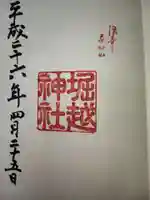 堀越
神社
平成二十六年四月二十五日